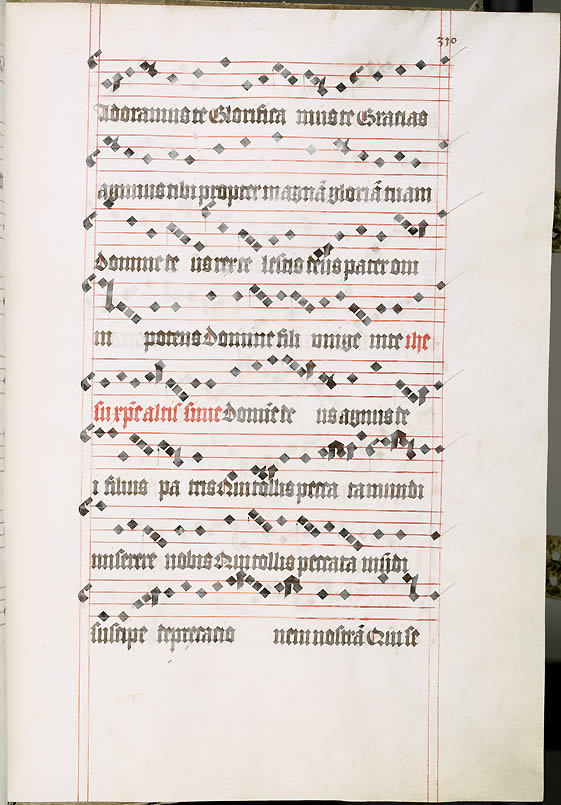 310
Adoramus te Glorifica mus te Gracias
agimus tibi propter magnā gloriā tuam
domine de us rex ce lestis deus pater om
ni potens domine fili unige nite ihe
su xp̄e altissime domīe de us agnus de
i filius pa tris Qui tollis pecca ta mundi
miserere nobis Qui tollis peccata mūdi
suscipe deprecacio nem nostrā Qui se